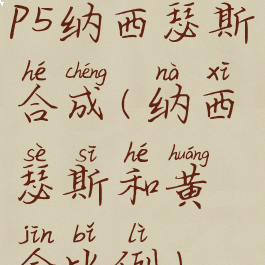 P5纳西瑟斯
hé chéng nà xī
合成(纳西
sè sī hé huáng
瑟斯和黄
jīn bǐ lì
金比例)